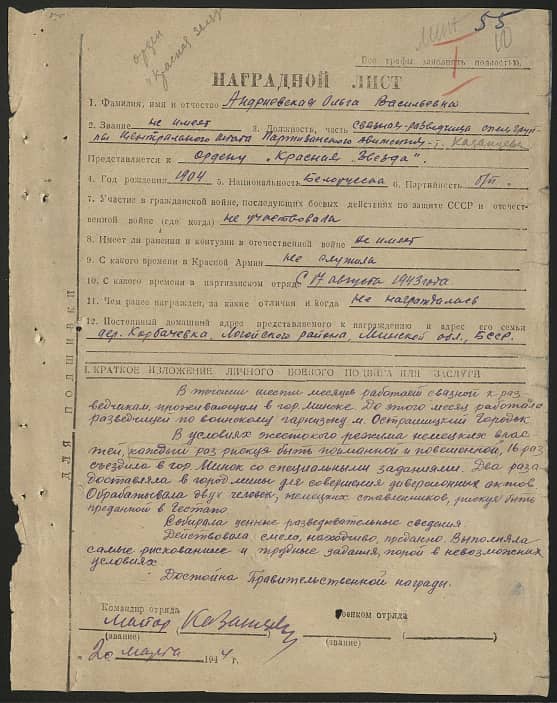 орден
"Красная звезда"
Минск
55
Все графы заполнять полностью.
НАГРАДНОЙ ЛИСТ
1. Фамилия, имя и отчество Андриевская Ольга Васильевна
2. Звание не имеет 3. Должность, часть связная-разведчица спецгруп-
пы Центрального штаба Партизанского движения - т. Казанцева
Представляется к Ордену „Красная Звезда".
4. Год рождения 1904 5. Национальность Белоруска 6. Партийность б/п.
7. Участие в гражданской войне, последующих боевых действиях по защите СССР и отечест-
венной войне (где когда) не участвовала
8. Имеет ли ранения и контузии в отечественной войне не имеет
9. С какого времени в Красной Армии не служила
10. С какого времени в партизанском отряде С 17 августа 1943 года
11. Чем ранее награжден, за какие отличия и когда не награждалась
12. Постоянный домашний адрес представляемого к награждению и адрес его семьи
дер. Корбачевка, Логойского района, Минской обл., БССР.
I. КРАТКОЕ ИЗЛОЖЕНИЕ ЛИЧНОГО БОЕВОГО ПОДВИГА ИЛИ ЗАСЛУГИ
В течении шести месяцев работает связной к раз
ведчикам, проживающим в гор. Минске. До этого месяц работала
разведчицей по воинскому гарнизону м. Острашицкий Городок
В условиях жестокого режима немецких влас
тей, каждый раз рискуя быть пойманной и повешенной, 16 раз
съездила в гор. Минск со специальными заданиями. Два раза
доставляла в город мины для совершения диверсионных актов.
Обрабатывала двух человек, немецких ставленников, рискуя быть
преданной в Гестапо.
Собирала ценные разведывательные сведения.
Действовала смело, находчиво, преданно. Выполняла
самые рискованные и трудные задания, порой в невозможных
условиях.
Достойна Правительственной награды.
ДЛЯ ПОДШИВКИ
Командир отряда
Военком отряда
майор Казанцев
(звание)
(звание)
20 марта 1944 г.